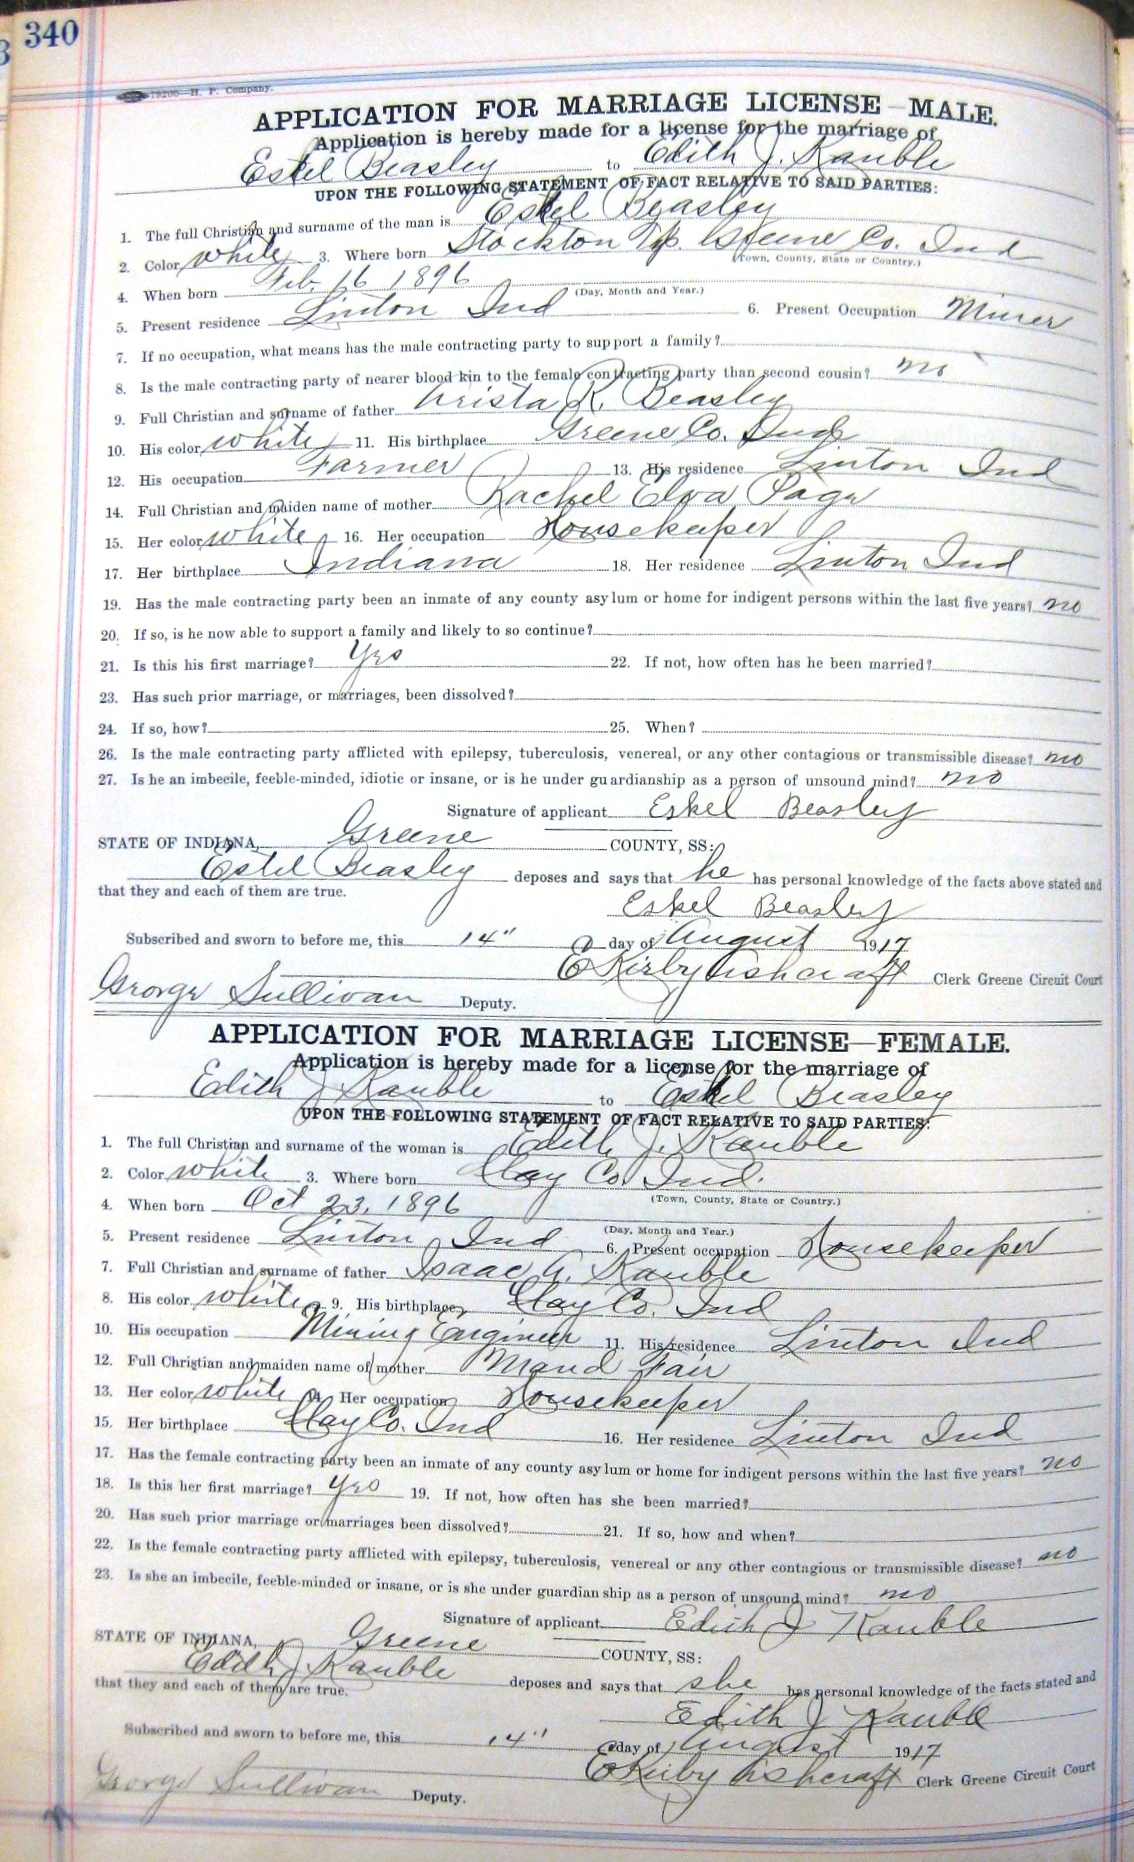 340
79200—H. P. Company.
APPLICATION FOR MARRIAGE LICENSE—MALE.
Application is hereby made for a license for the marriage of
Estel Beasley to Edith J. Kauble
UPON THE FOLLOWING STATEMENT OF FACT RELATIVE TO SAID PARTIES:
1. The full Christian and surname of the man is Eskel Beasley
2. Color white 3. Where born Stockton Tp. Greene Co. Ind
(Town, County, State or Country.)
4. When born Feb. 16 1896
(Day, Month and Year.)
5. Present residence Linton Ind 6. Present Occupation Miner
7. If no occupation, what means has the male contracting party to support a family?
8. Is the male contracting party of nearer blood kin to the female contracting party than second cousin? no
9. Full Christian and surname of father K. Beasley
10. His color white 11. His birthplace Greene Co. Ind
12. His occupation Farmer 13. His residence Linton Ind
14. Full Christian and maiden name of mother Rachel Elva Page
15. Her color white 16. Her occupation Housekeeper
17. Her birthplace Indiana 18. Her residence Linton Ind
19. Has the male contracting party been an inmate of any county asylum or home for indigent persons within the last five years? no
20. If so, is he now able to support a family and likely to so continue?
21. Is this his first marriage? Yes 22. If not, how often has he been married?
23. Has such prior marriage, or marriages, been dissolved?
24. If so, how? 25. When?
26. Is the male contracting party afflicted with epilepsy, tuberculosis, venereal, or any other contagious or transmissible disease? no
27. Is he an imbecile, feeble-minded, idiotic or insane, or is he under guardianship as a person of unsound mind? no
Signature of applicant Eskel Beasley
STATE OF INDIANA, Greene COUNTY, SS:
Estel Beasley deposes and says that he has personal knowledge of the facts above stated and
that they and each of them are true.
Eskel Beasley
Subscribed and sworn to before me, this 14" day of August 1917
E Kirby Ashcraft Clerk Greene Circuit Court
George Sullivan Deputy.
APPLICATION FOR MARRIAGE LICENSE—FEMALE.
Application is hereby made for a license for the marriage of
Edith J Kauble to Eskel Beasley
UPON THE FOLLOWING STATEMENT OF FACT RELATIVE TO SAID PARTIES:
1. The full Christian and surname of the woman is Edith J. Kauble
2. Color white 3. Where born Clay Co. Ind.
(Town, County, State or Country.)
4. When born Oct 23, 1896
(Day, Month and Year.)
5. Present residence Linton Ind 6. Present occupation Housekeeper
7. Full Christian and surname of father Isaac A. Kauble
8. His color white 9. His birthplace Clay Co. Ind
10. His occupation Mining Engineer 11. His residence Linton Ind
12. Full Christian and maiden name of mother Maud Fair
13. Her color white 14. Her occupation Housekeeper
15. Her birthplace Clay Co. Ind 16. Her residence Linton Ind
17. Has the female contracting party been an inmate of any county asylum or home for indigent persons within the last five years? no
18. Is this her first marriage? Yes 19. If not, how often has she been married?
20. Has such prior marriage or marriages been dissolved? 21. If so, how and when?
22. Is the female contracting party afflicted with epilepsy, tuberculosis, venereal or any other contagious or transmissible disease? no
23. Is she an imbecile, feeble-minded or insane, or is she under guardianship as a person of unsound mind? no
Signature of applicant Edith J Kauble
STATE OF INDIANA, Greene COUNTY, SS:
Edith J Kauble deposes and says that she has personal knowledge of the facts stated and
that they and each of them are true.
Edith J Kauble
Subscribed and sworn to before me, this 14" day of August 1917
E Kirby Ashcraft Clerk Greene Circuit Court
George Sullivan Deputy.